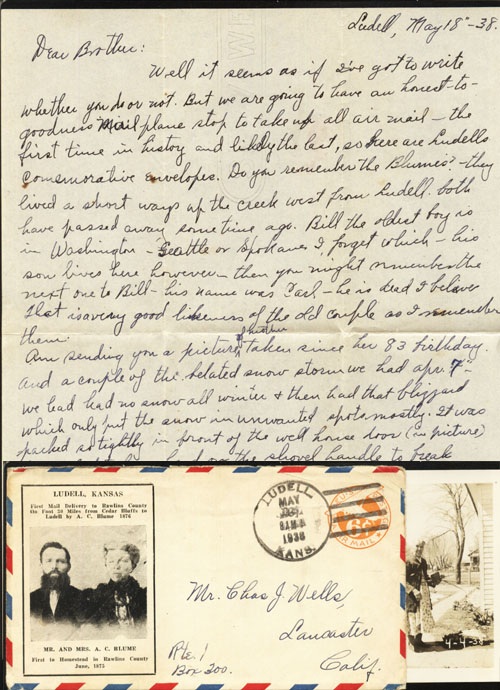 Ludell, May 18 -38.
Dear Brother:
Well it seems as if I've got to write
whether you do or not. But we are going to have an honest-to-
goodness Mail plane stop to take up all air mail - the
first time in history and likely the last, so here are Ludells
comemorative envelopes. Do you remember the Blumes? - they
lived a short ways up the creek west from Ludell. both
have passed away some time ago. Bill the oldest boy is
in Washington - Seattle or Spokane, I forget which - his
son lives here however - then you might remember the
next one to Bill - his name was Carl - he is dead I believe
that is a very good likeness of the old couple as I remember
them.
Am sending you a picture of mother taken since her 83 birthday.
and a couple of the belated snow storm we had apr. 7 -
we had had no snow all winter & then had that blizzard
which only put the snow in unwanted spots mostly. It was
packed so tightly in front of the well house door (in picture)
on the shovel handle to break
LUDELL, KANSAS
First Mail Delivery to Rawlins County
On Foot 20 Miles from Cedar Bluffs to
Ludell by A. C. Blume 1876
MR. AND MRS. A. C. BLUME
First to Homestead in Rawlins County
June, 1875
LUDELL
MAY
8 AM
1938
KANS.
6c
AIR MAIL
Mr. Chas J. Wells,
Lancaster
Calif.
Rte. 1
Box 200.
4-9-38